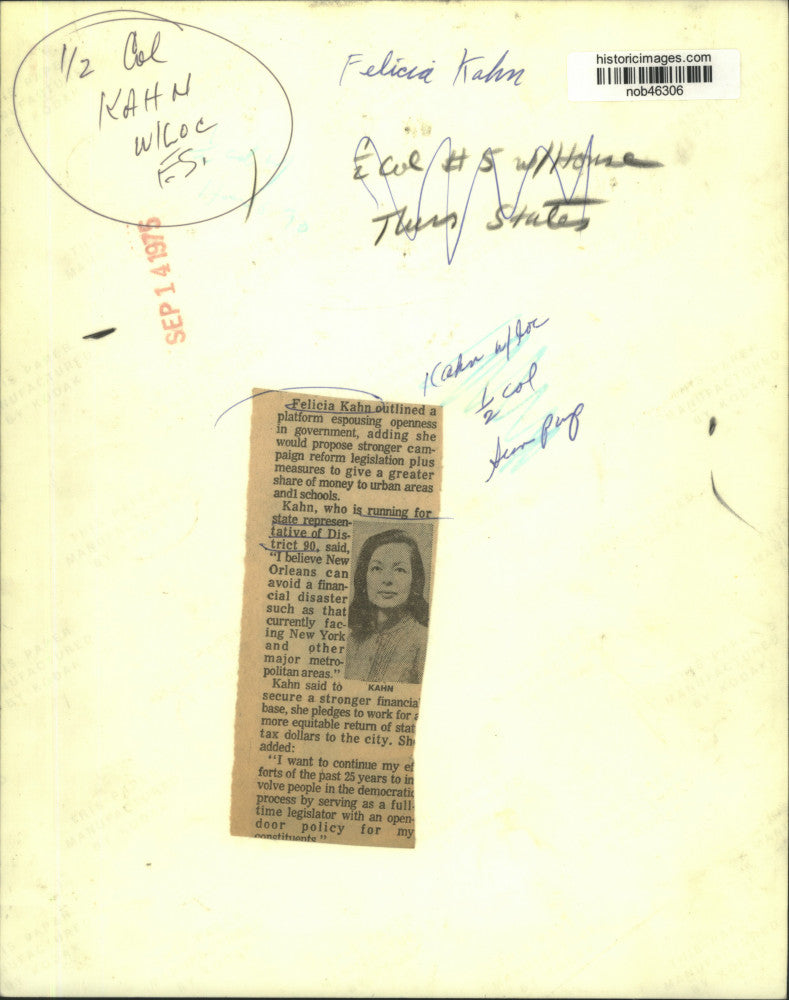 1/2 Col
KAHN
W/LOC
F.S.
Felicia Kahn
historicimages.com
nob46306
1/2 Col # 5 w/House
Thurs States
SEP 14 1975
Kahn w/loc
1/2 col
Felicia Kahn outlined a
platform espousing openness
in government, adding she
would propose stronger cam-
paign reform legislation plus
measures to give a greater
share of money to urban areas
and1 schools.
Kahn, who is running for
state represen-
tative of Dis-
trict 90, said,
"I believe New
Orleans can
avoid a finan-
cial disaster
such as that
currently fac-
ing New York
and other
major metro-
politan areas."
KAHN
Kahn said to
secure a stronger financia
base, she pledges to work for a
more equitable return of stat
tax dollars to the city. She
added:
"I want to continue my ef
forts of the past 25 years to in
volve people in the democratic
process by serving as a full-
time legislator with an open-
door policy for my
constituents."